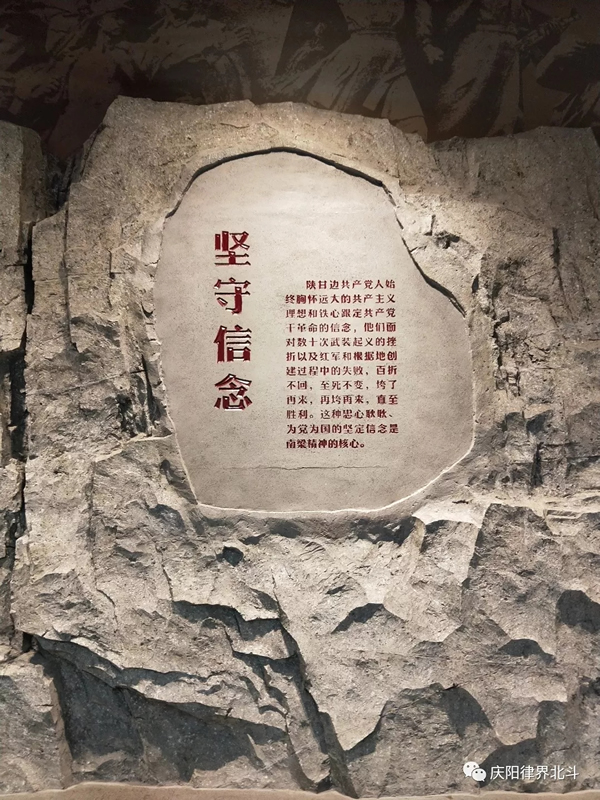 坚守信念
陕甘边共产党人始
终胸怀远大的共产主义
理想和铁心跟定共产党
干革命的信念，他们面
对数十次武装起义的挫
折以及红军和根据地创
建过程中的失败，百折
不回，至死不变，垮了
再来，再垮再来，直至
胜利。这种忠心耿耿、
为党为国的坚定信念是
南梁精神的核心。
庆阳律界北斗